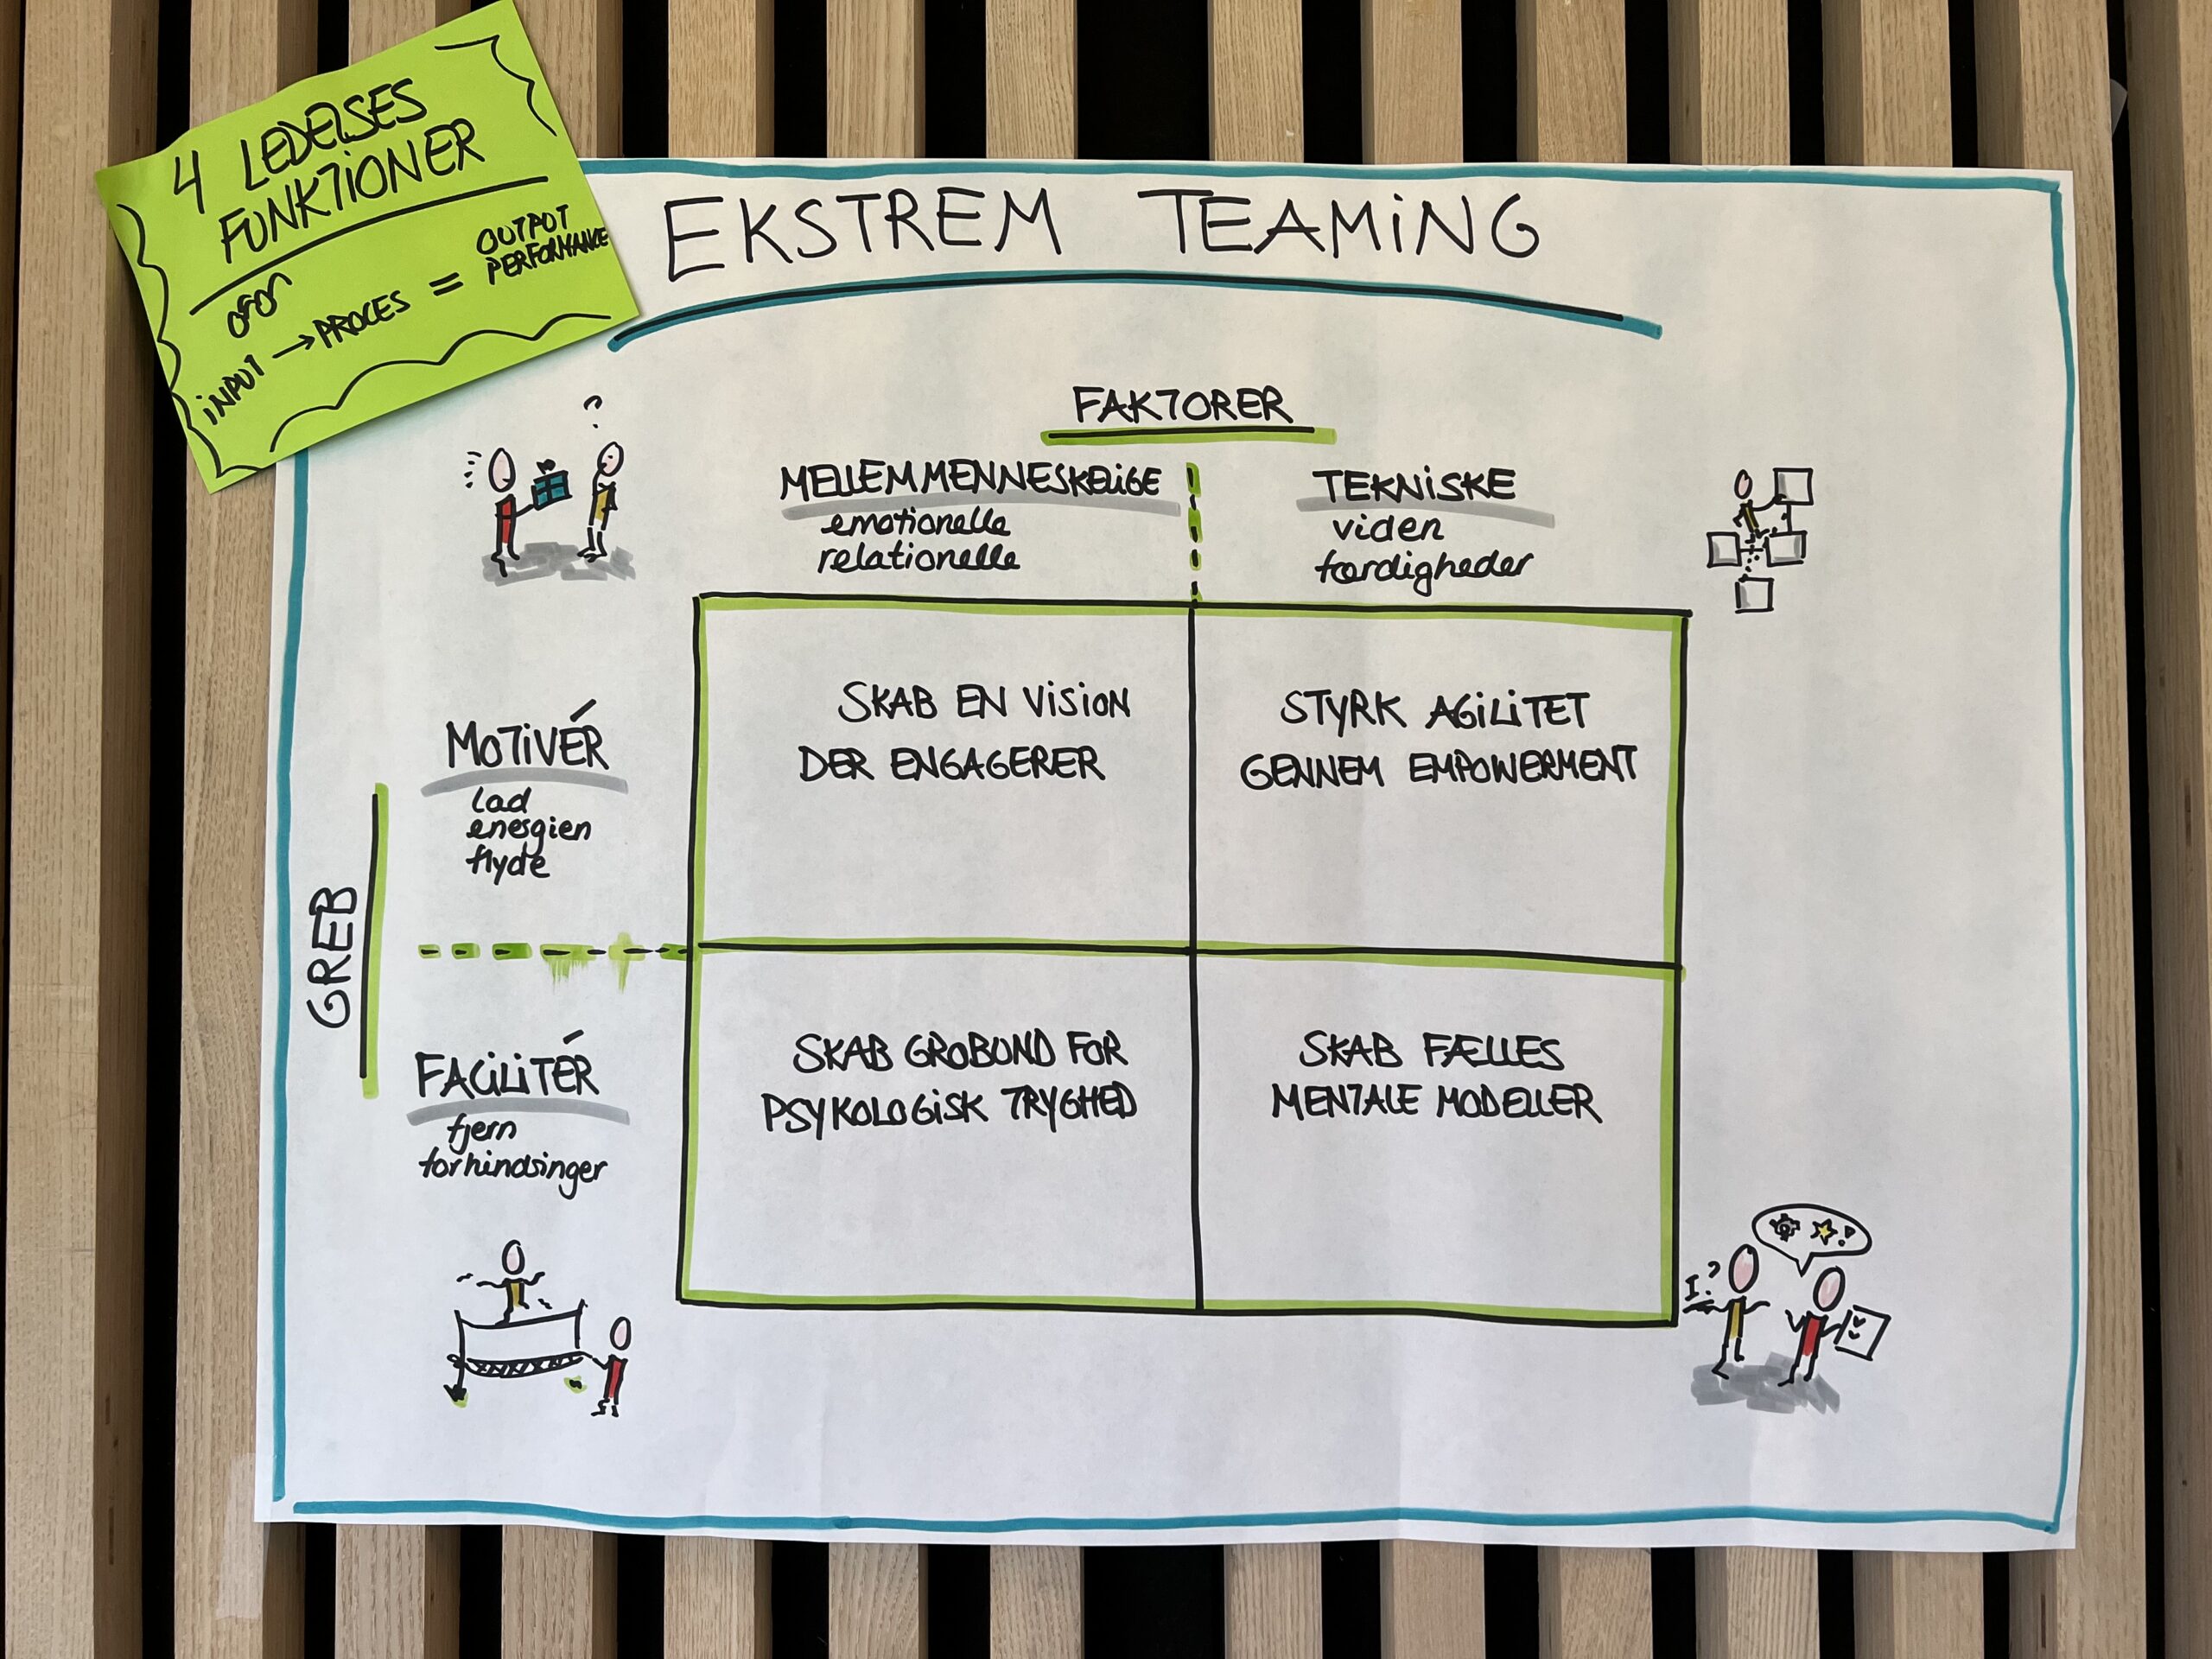 4 LEDELSES
FUNKTIONER
INPUT → PROCES = OUTPUT
PERFORMANCE
EKSTREM TEAMING
FAKTORER
MELLEMMENNESKELIGE
emotionelle
relationelle
TEKNISKE
viden
færdigheder
GREB
MOTIVÉR
lad
energien
flyde
SKAB EN VISION
DER ENGAGERER
STYRK AGILITET
GENNEM EMPOWERMENT
FACILITÉR
fjern
forhindringer
SKAB GROBUND FOR
PSYKOLOGISK TRYGHED
SKAB FÆLLES
MENTALE MODELLER